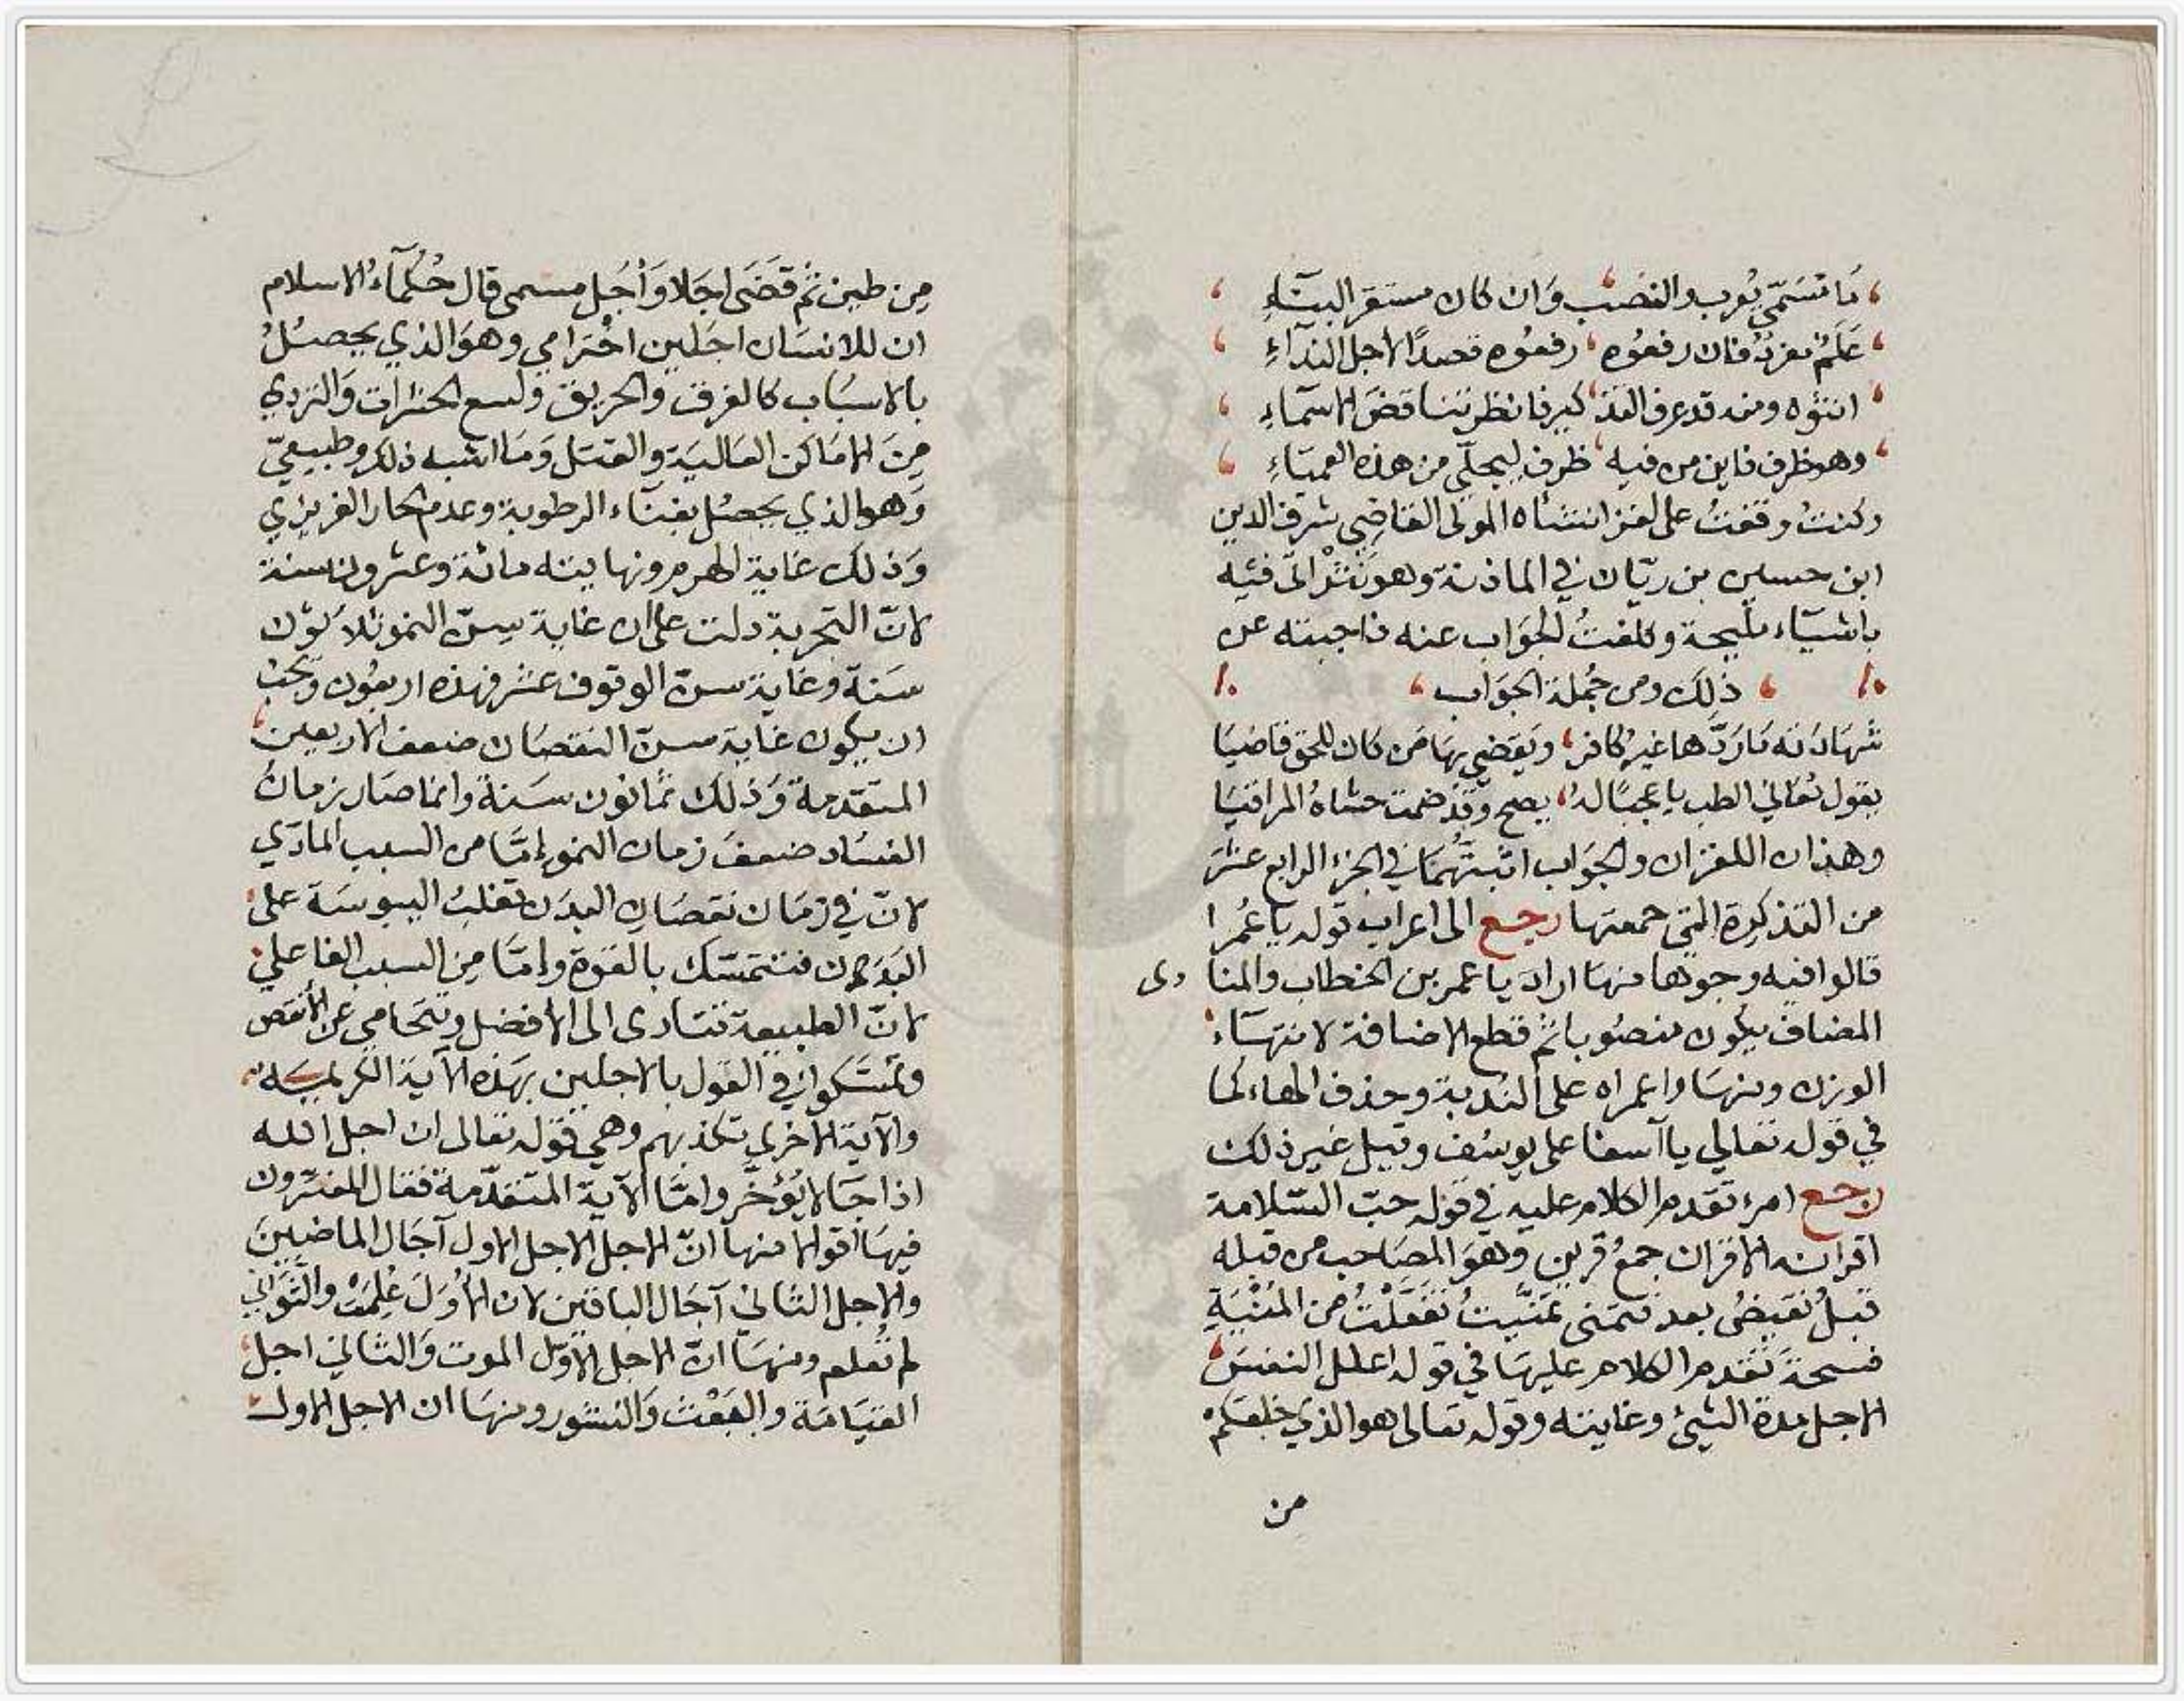 ما تسمى يعرب والنصب وان كان مستقر البناء
علم مفرد فان رفعوه رفعوه قصدا لاجل النداء
انثوه ومنه قد عرف التذكير فانظر تناقض الاسماء
وهو ظرف فاين من فيه ظرف ليجلي من هذه العمياء
وكنت وقفت على لغز انشأه المولى القاضي شرف الدين
ابن حسين بن ريان في الماذنة وهو نثر اتى فيه
باشياء مليحة وكلفت الجواب عنه فاجبته عن
ذلك ومن جملة الجواب
شهادته ما ردها غير كافر ويقضي بها من كان للحق قاضيا
يقول تعالي الطب يا عجبا له يصح وقد ضمت حشاه المراقيا
وهذان اللغزان والجواب اثبتهما في الجزء الرابع عشر
من التذكرة التي جمعتها رجع الى اعراب قوله يا عمرا
قالوا فيه وجوها منها اراد يا عمر بن الخطاب والمنادى
المضاف يكون منصوبا ثم قطع الاضافة لانتهاء
الوزن ومنها واعمراه على الندبة وحذف الهاء كما
في قوله تعالي يا آسفا على يوسف وقيل غير ذلك
رجع امرء تقدم الكلام عليه في قوله حب السلامة
اقرانه الاقران جمع قرين وهو المصاحب من قبله
قبل نقيض بعد فتمنى تمنيت تفعلت من المنية
فسحة تقدم الكلام عليها في قوله اعلل النفس
الاجل مدة الشئ وغايته وقوله تعالى هو الذي خلقكم
من
من طين ثم قضى اجلا وأجل مسمى قال حكمآء الاسلام
ان للانسان اجلين اخترامي وهو الذي يحصل
بالاسباب كالغرق والحريق ولسع الحشرات والتردي
من الاماكن العالية والقتل وما اشبه ذلك وطبيعي
وهو الذي يحصل بفناء الرطوبة وعدم الحار الغريزي
وذلك غاية الهرم ونهايته مائة وعشرون سنة
لان التجربة دلت على ان غاية سن النمو ثلاثون
سنة وغاية سن الوقوف عشر فهذه اربعون ويجب
ان يكون غاية سن النقصان ضعف الاربعين
المتقدمة وذلك ثمانون سنة وانما صار زمان
الفساد ضعف زمان النمو إما من السبب المادي
لان في زمان نقصان البدن تغلب اليبوسة على
البدن فتتمسك بالقوة وإما من السبب الفاعلي
لان الطبيعة تتادى الى الافضل وتتحامى عن الأنقص
وتمسكوا في القول بالاجلين بهذه الآية الكريمة
والآية الاخرى تكذبهم وهي قوله تعالى ان اجل الله
اذا جا لا يؤخر واما الآية المتقدمة فقال المفسرون
فيها اقوالا منها ان الاجل الاجل الاول آجال الماضين
والاجل الثاني آجال الباقين لان الأول علمت والثواني
لم تعلم ومنها ان الاجل الاول الموت والثاني اجل
القيامة والبعث والنشور ومنها ان الاجل الاول